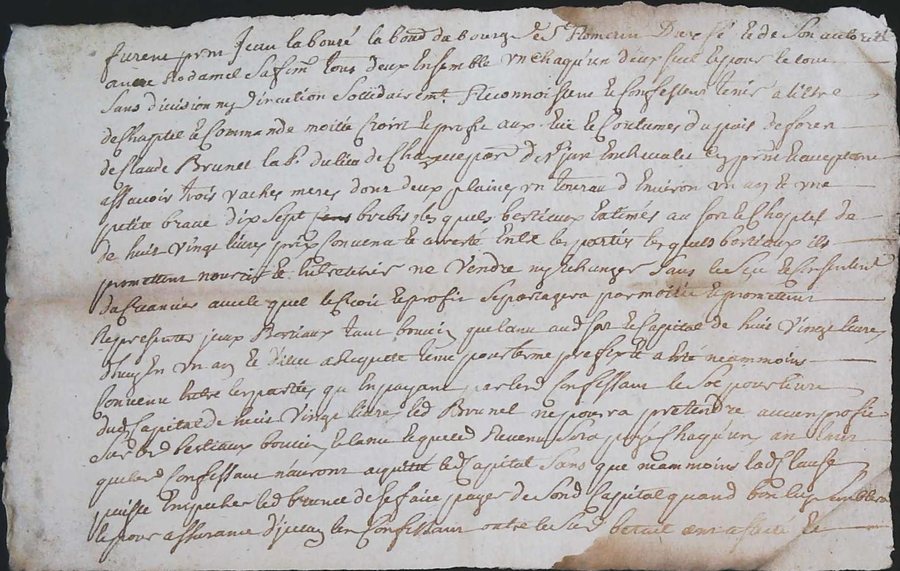 furent prnt Jean labouré la bond du bourg de St Romain D'urfé et de Son autorité
damel Sa fem tous deux Ensemble un chaqu'un deux Seul et pour le tout
Sans division ny discution Sollidairemt Reconnoissent et Confessent tenir a titre
de Chaptel et Commande moitié Croix et profit aux et Coutumes du païs de forez
de Claude Brunet lab. du lieu de de St Just En chevalet Cy prnt et acceptant
assavoir trois vaches meres dont deux plaines un toreau d'Environ un an et une
petite brave dix Sept brebis les quels bestiaux Estimés au Sort et Chaptel de
de huit vingt livres prix Convenu et arresté Entre les parties les quels bestiaux ils
promettent nourir et Entretenir ne Vendre ny Echanger Sans le Sçeu et Consentemt
du Creancier avec le quel le Croit et profit Se partagera par moitié et promettent
Representer yceux Bestiaux tant bouvin que lanu aud sort et Capital de huit Vingt livres
d'huy En un an et d'illec a Requeste terme pour terme prefix et a été neammoins
Convenu Entre les parties qu'En payant par lesd Confessant le Sol pour livre
dud Capital de huit Vingt livres led Brunet ne pourra pretendre aucun profit
Sur lesd bestiaux bouvin et lanu et que led Revenu Sera payé Chaqu'un an
que lesd Confessant n'auront aquitté led Capital Sans que neammoins lad Clause
puisse Empecher led brunet de Se faire payer de Sond Capital quand bon luy Semblera
et pour assurance d'yceux les Confessant outre le Susd betail ont affecté et